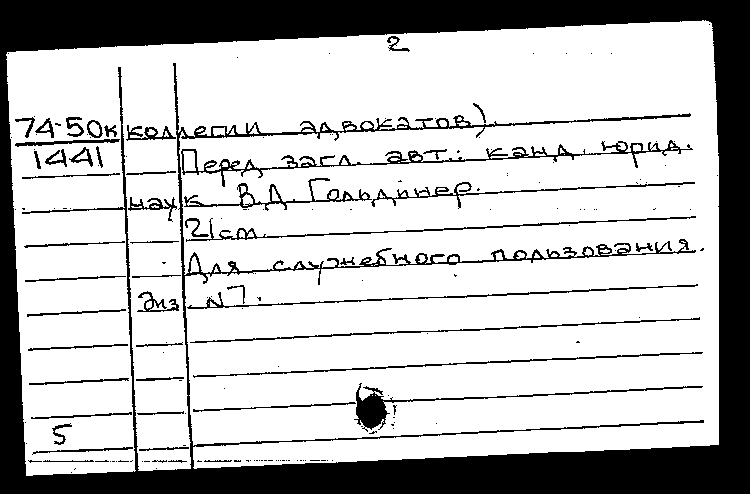 2
74-50к коллегии адвокатов).
1441 Перед загл. авт.: канд. юрид.
наук В.Д. Гольдинер.
21см.
Для служебного пользования.
Экз. №7.
5